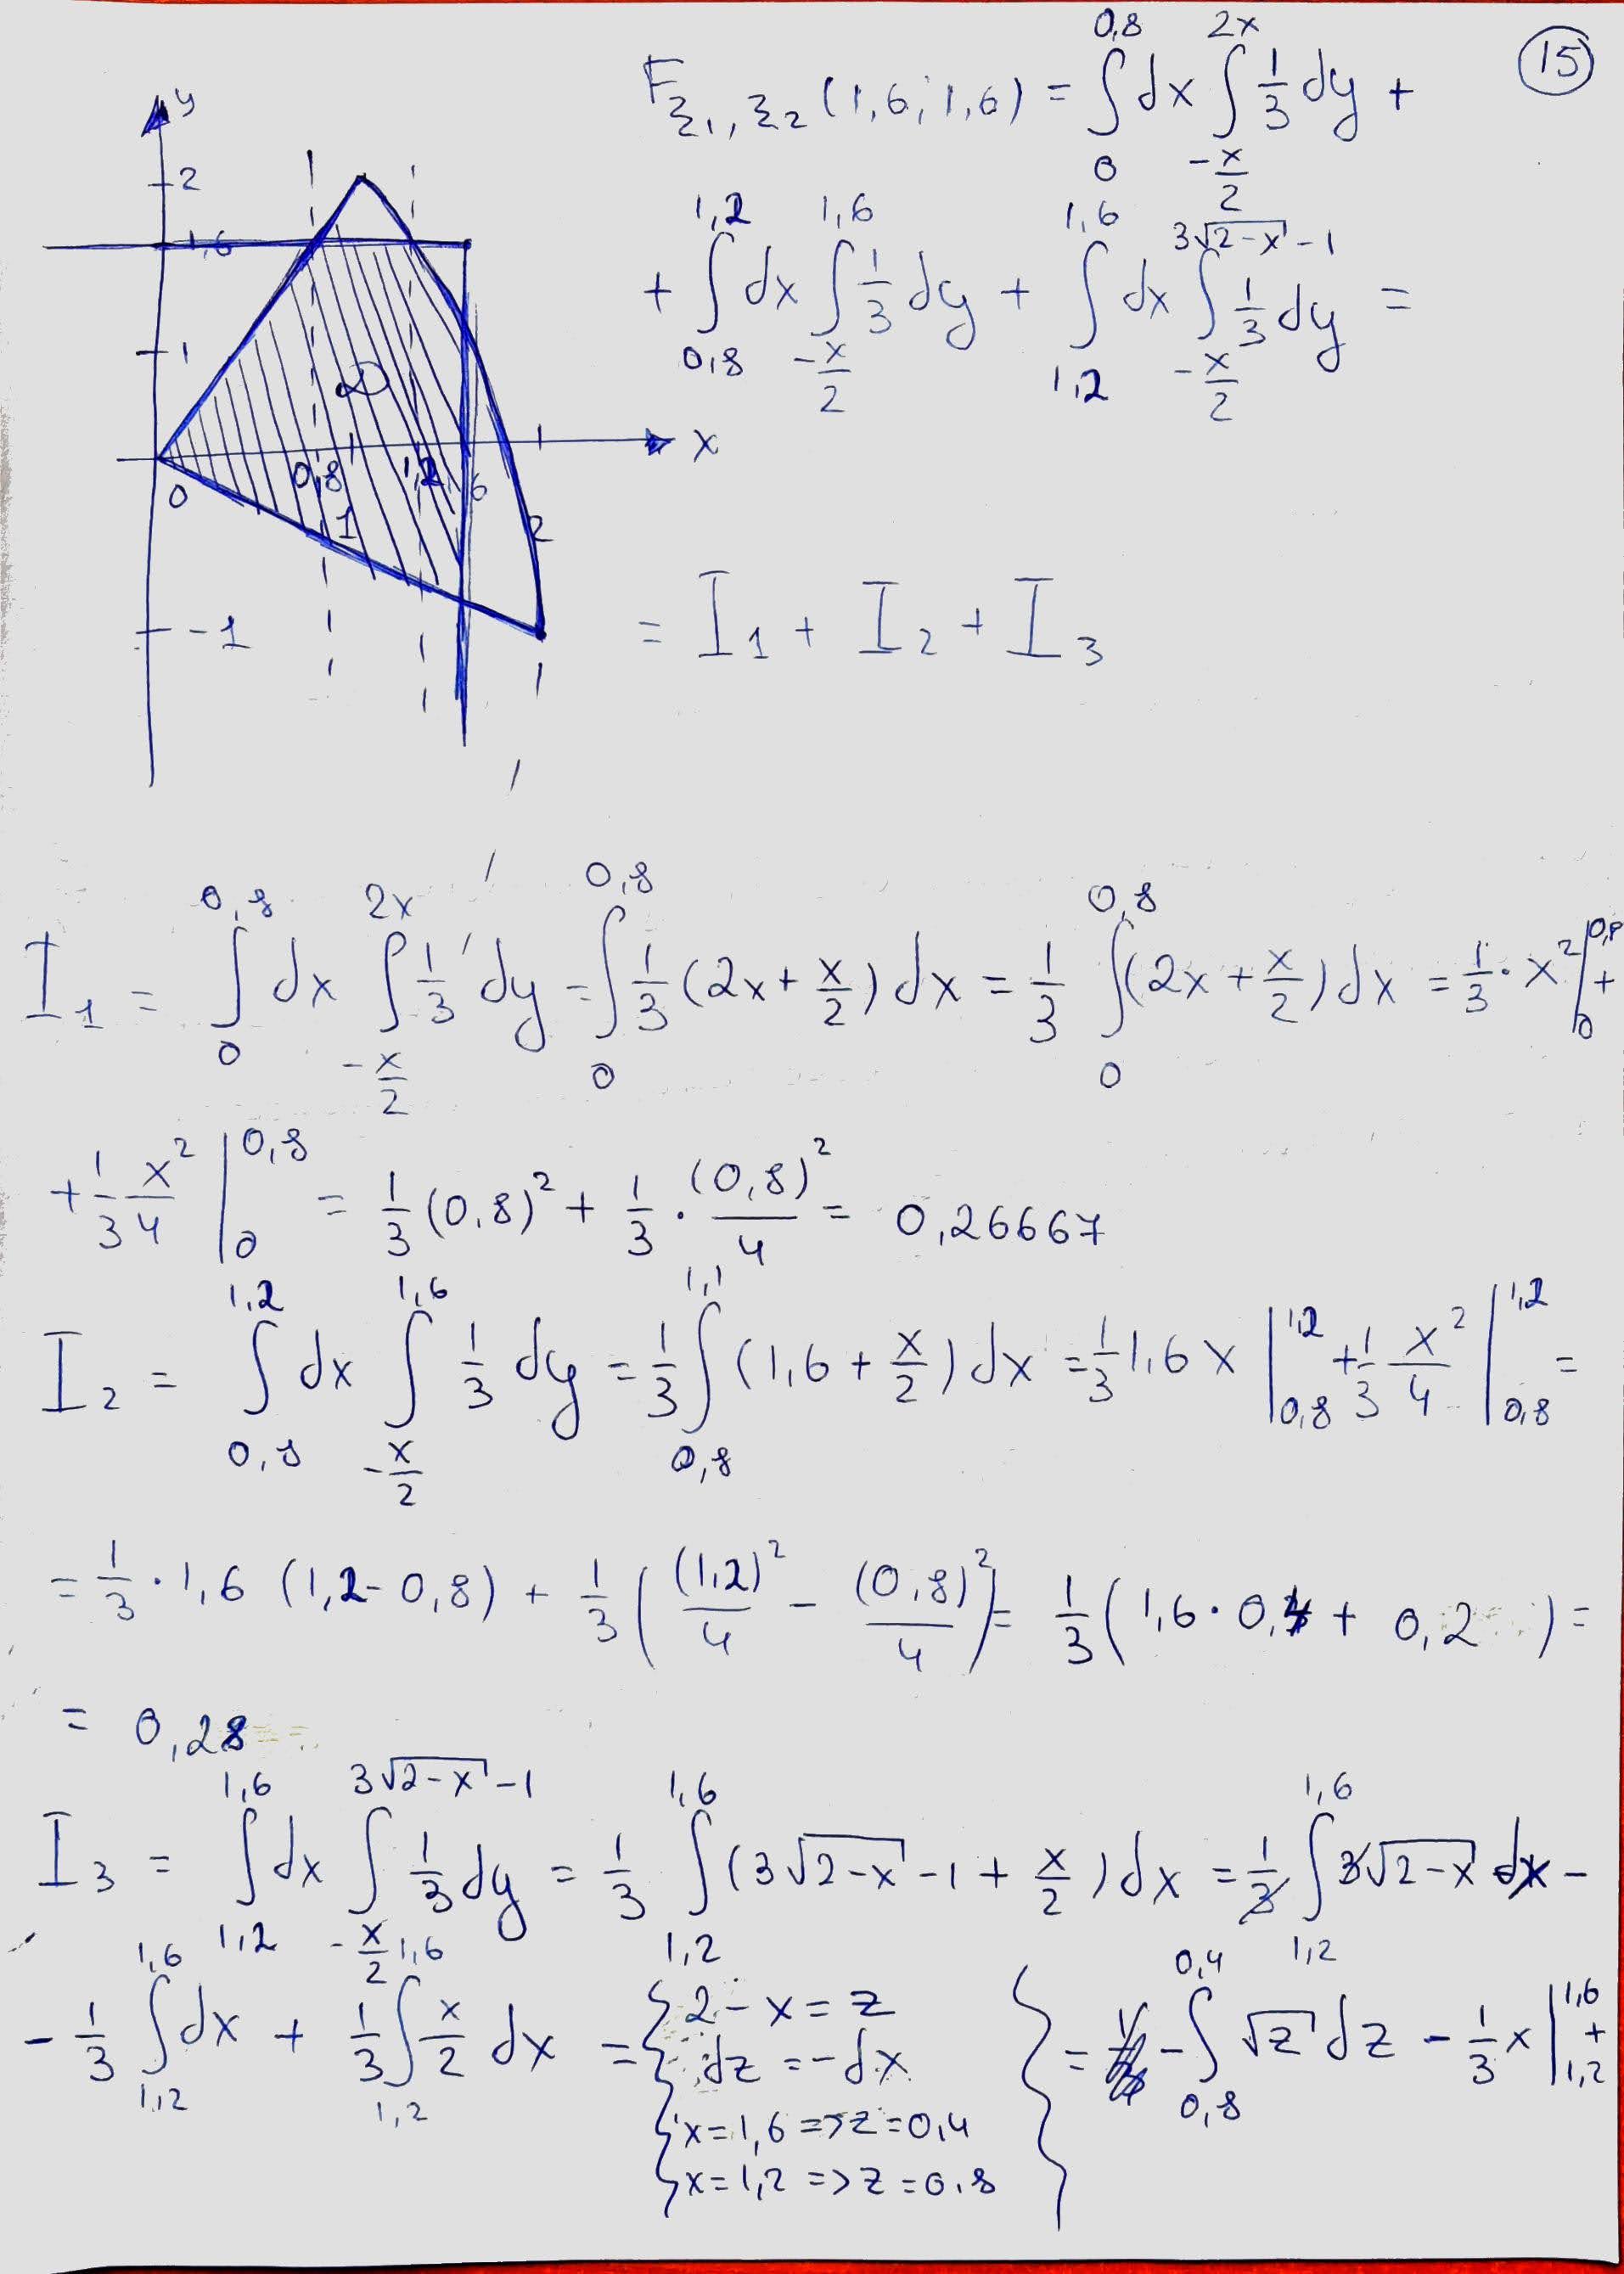 15
F_{ξ_1, ξ_2} (1,6; 1,6) = ∫_0^{0,8} dx ∫_{-x/2}^{2x} 1/3 dy +
+ ∫_{0,8}^{1,2} dx ∫_{-x/2}^{1,6} 1/3 dy + ∫_{1,2}^{1,6} dx ∫_{-x/2}^{3√(2-x) -1} 1/3 dy =
= I_1 + I_2 + I_3
y
2
1,6
1
D
x
0
0,8
1,2
6
1
2
-1
I_1 = ∫_0^{0,8} dx ∫_{-x/2}^{2x} 1/3 dy = ∫_0^{0,8} 1/3 (2x + x/2) dx = 1/3 ∫_0^{0,8} (2x + x/2) dx = 1/3 · x^2 |_0^{0,8} +
+ 1/3 x^2/4 |_0^{0,8} = 1/3 (0,8)^2 + 1/3 · (0,8)^2/4 = 0,26667
I_2 = ∫_{0,8}^{1,2} dx ∫_{-x/2}^{1,6} 1/3 dy = 1/3 ∫_{0,8}^{1,1} (1,6 + x/2) dx = 1/3 1,6 x |_{0,8}^{1,2} + 1/3 x^2/4 |_{0,8}^{1,2} =
= 1/3 · 1,6 (1,2 - 0,8) + 1/3 ( (1,2)^2/4 - (0,8)^2/4 ) = 1/3 ( 1,6 · 0,4 + 0,2 ) =
= 0,28
I_3 = ∫_{1,2}^{1,6} dx ∫_{-x/2}^{3√(2-x) -1} 1/3 dy = 1/3 ∫_{1,2}^{1,6} (3√(2-x) - 1 + x/2) dx = 1/3 ∫_{1,2}^{1,6} 3√(2-x) dx -
- 1/3 ∫_{1,2}^{1,6} dx + 1/3 ∫_{1,2}^{1,6} x/2 dx = { 2 - x = z
dz = -dx
x = 1,6 => z = 0,4
x = 1,2 => z = 0,8 } = - ∫_{0,8}^{0,4} √z dz - 1/3 x |_{1,2}^{1,6} +